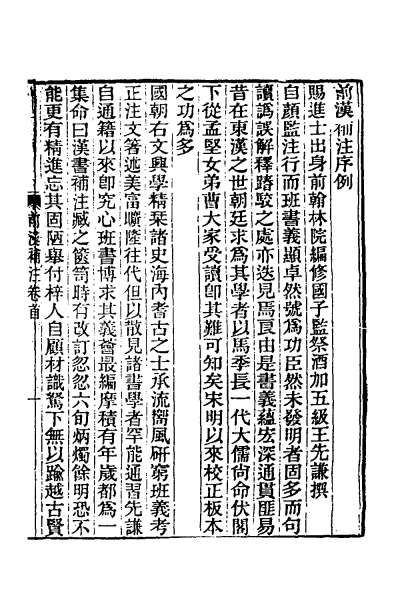 前漢補注序例
賜進士出身前翰林院編修國子監祭酒加五級王先謙撰
自顏監注行而班書義顯卓然號爲功臣然未發明者固多而句
讀譌誤解釋踳駮之處亦迭見焉良由是書義蘊宏深通貫匪易
昔在東漢之世朝廷求爲其學者以馬季長一代大儒尙命伏閣
下從孟堅女弟曹大家受讀卽其難可知矣宋明以來校正板本
之功爲多
國朝右文興學精栞諸史海內耆古之士承流嚮風硏窮班義考
正注文箸述美富曠隆往代但以散見諸書學者罕能通習先謙
自通籍以來卽究心班書博求其義薈最編摩積有年歲都爲一
集命曰漢書補注臧之篋笥時有改訂忽忽六旬炳燭餘明恐不
能更有精進忘其固陋舉付梓人自顧材識駑下無以踰越古賢
前漢補注卷首
一